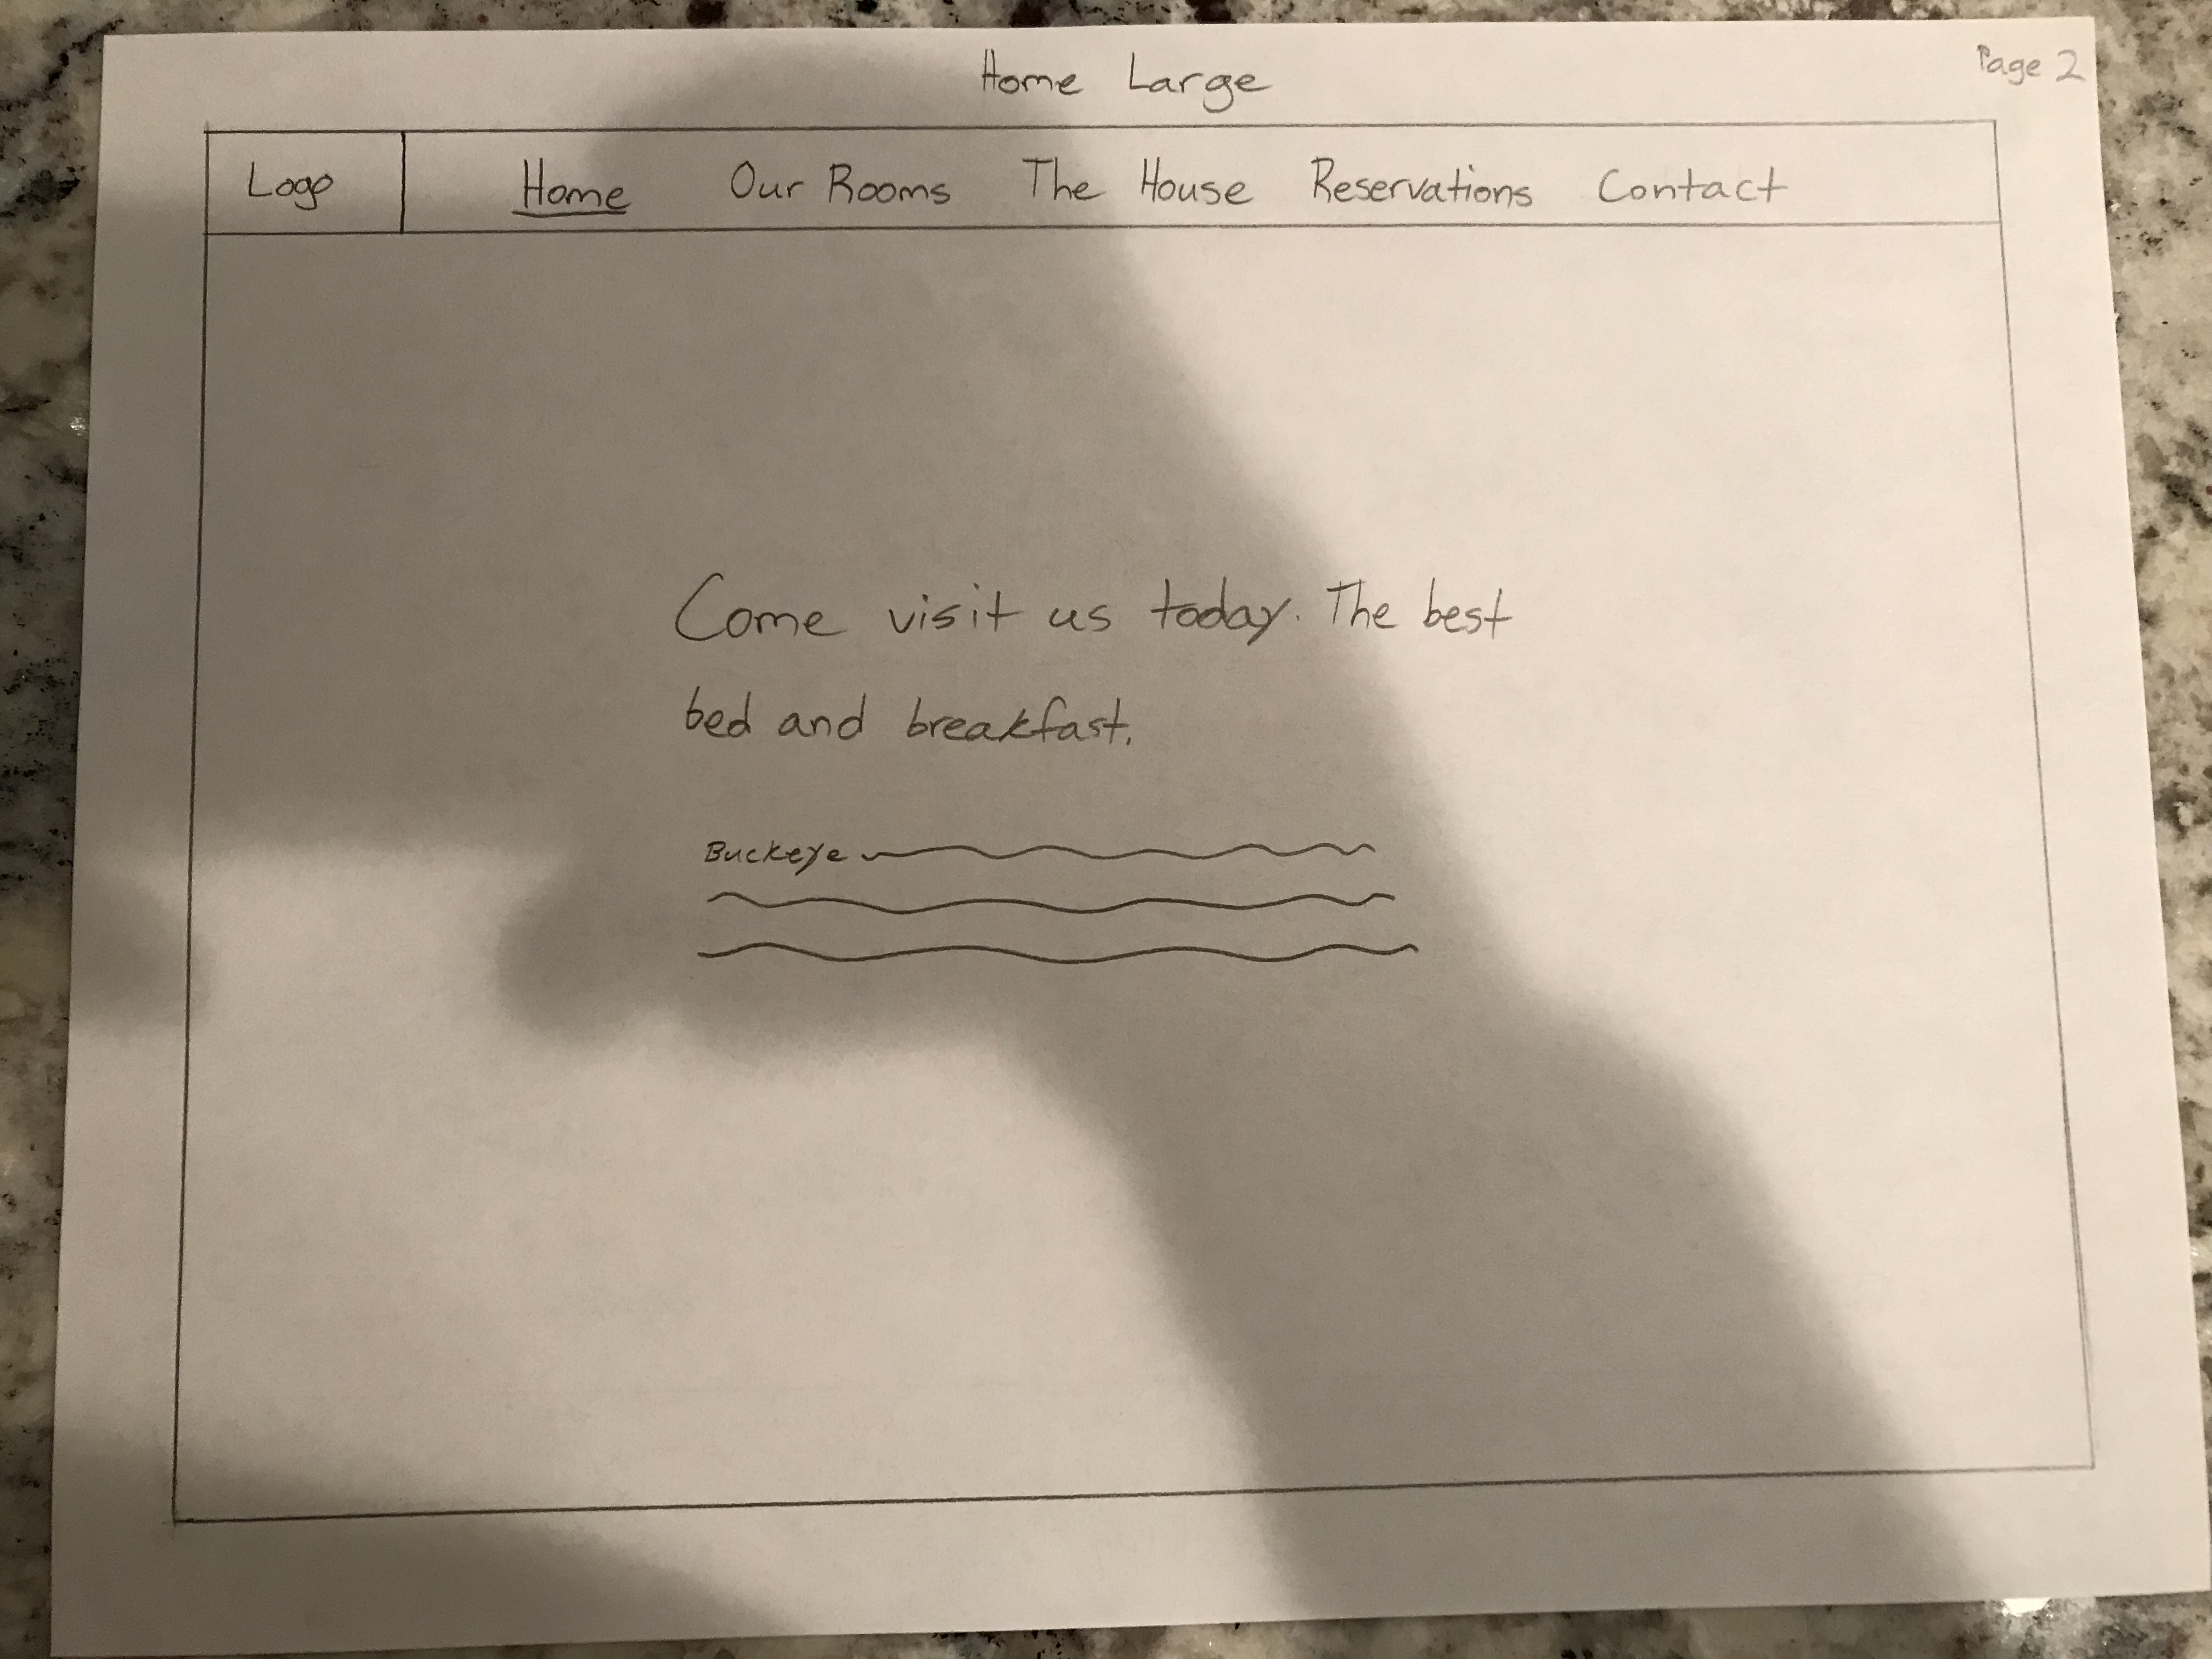 Home Large
Page 2
Logo
Home Our Rooms The House Reservations Contact
Come visit us today. The best
bed and breakfast.
Buckeye